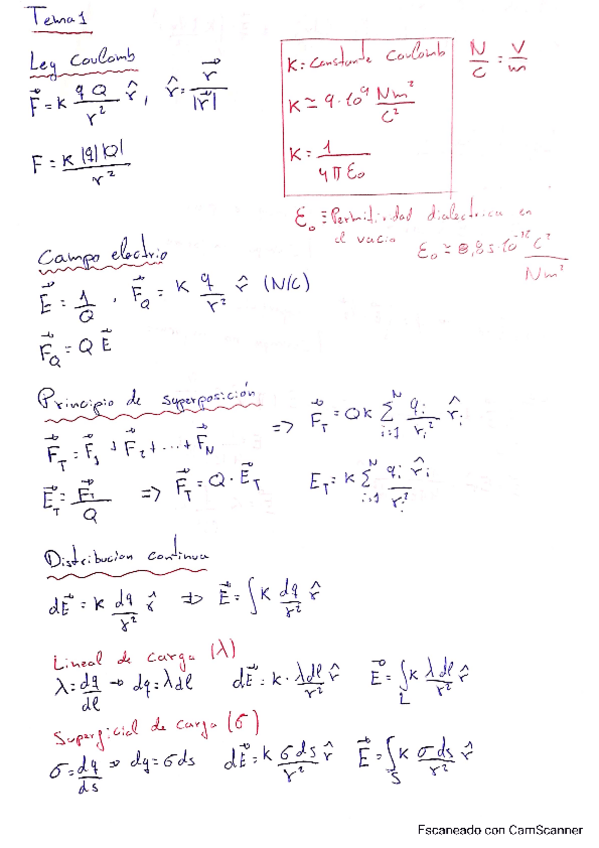 Tema 1
Ley Coulomb
F⃗ = k qQ/r² r̂, r̂ = r⃗/|r⃗|
F = k |q||Q|/r²
K: Constante Coulomb
K ≃ 9·10⁹ Nm²/C²
K = 1/4πε₀
N/C = V/m
ε₀ ≡ Permitividad dialectrica en
el vacio ε₀ ≃ 8,85·10⁻¹² C²/Nm²
Campo electrio
E⃗ = 1/Q · F⃗_Q = k q/r² r̂ (N/C)
F⃗_Q = Q E⃗
Principio de superposición
F⃗_T = F⃗₁ + F⃗₂ + ... + F⃗_N => F⃗_T = Qk ∑_{i=1}^{N} q_i/r_i² r̂_i
E⃗_T = F⃗_T/Q => F⃗_T = Q · E⃗_T E_T = k ∑_{i=1}^{N} q_i/r_i² r̂_i
Distribucion continua
dE⃗ = k dq/r² r̂ => E⃗ = ∫ k dq/r² r̂
Lineal de carga (λ)
λ = dq/dl → dq = λdl dE⃗ = k · λdl/r² r̂ E⃗ = ∫_L k λdl/r² r̂
Superficial de carga (σ)
σ = dq/ds → dq = σds dE⃗ = k σds/r² r̂ E⃗ = ∫_S k σds/r² r̂
Escaneado con CamScanner